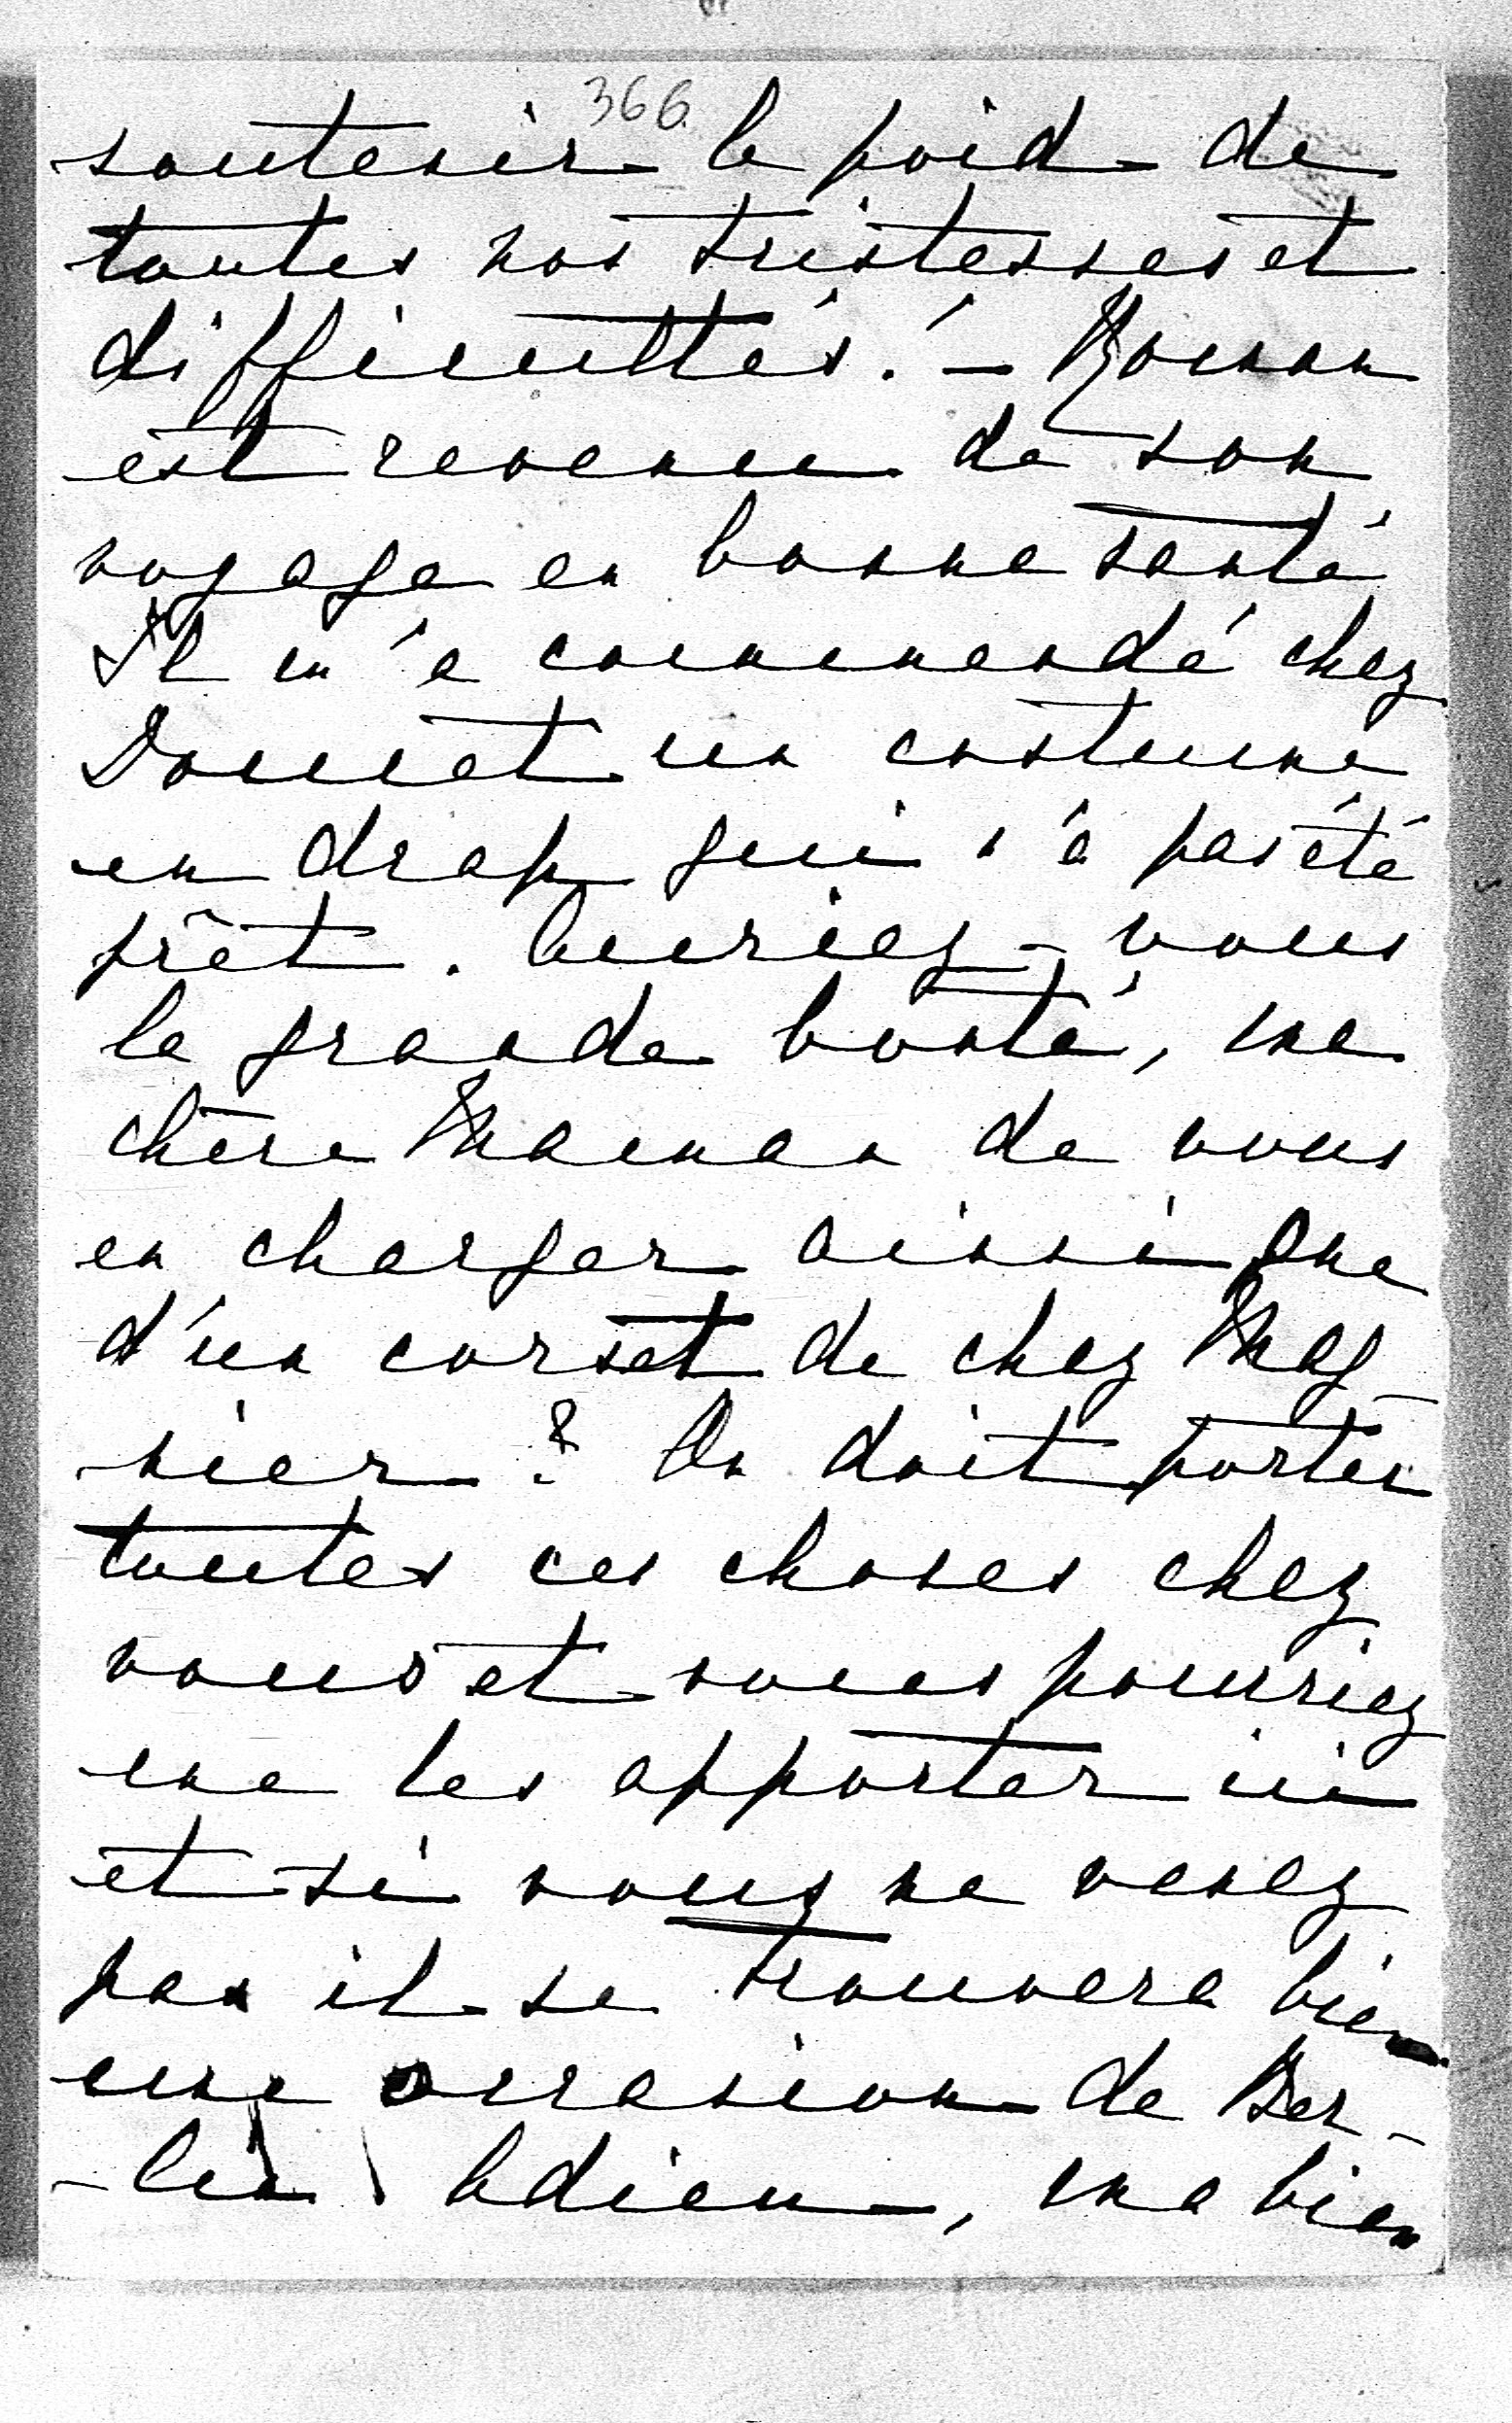 366.
soutenir le poid de
toutes nos tristesses et
difficultés. — Roman
est revenu de son
voyage en bonne santé
Il m'a commandé chez
Doucet un costume
en drap qui n'a pas été
prêt. Auriez-vous
la grande bonté, ma
chère Maman de vous
en charger ainsi que
d'un corset de chez Mag-
nier? On doit porter
toutes ces choses chez
vous et vous pourriez
me les apporter ici
et si vous ne venez
pas il se trouvera bien
une occasion de Ber-
-lin Adieu, ma bien